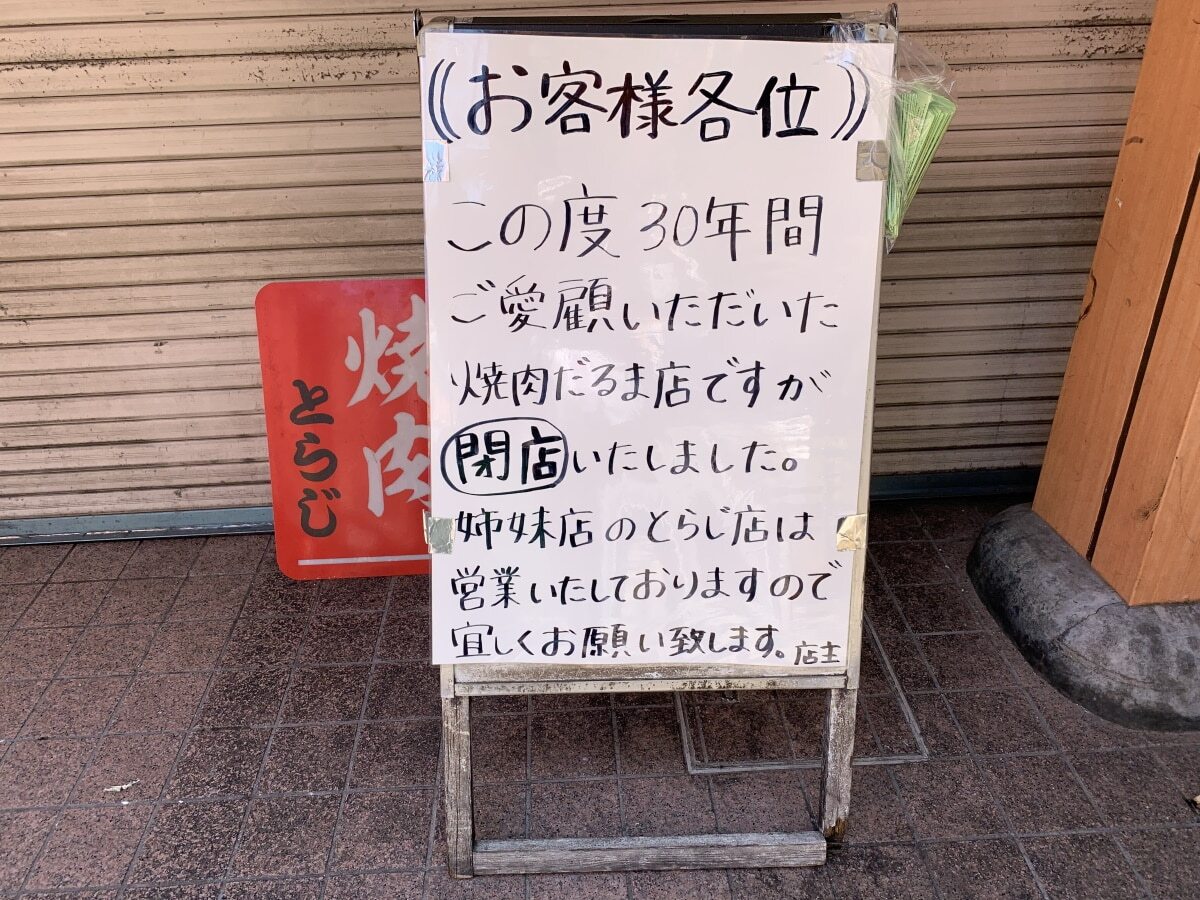 《お客様各位》
この度30年間
ご愛顧いただいた
焼肉だるま店ですが
閉店いたしました。
姉妹店のとらじ店は
営業いたしておりますので
宜しくお願い致します。店主
焼肉
とらじ